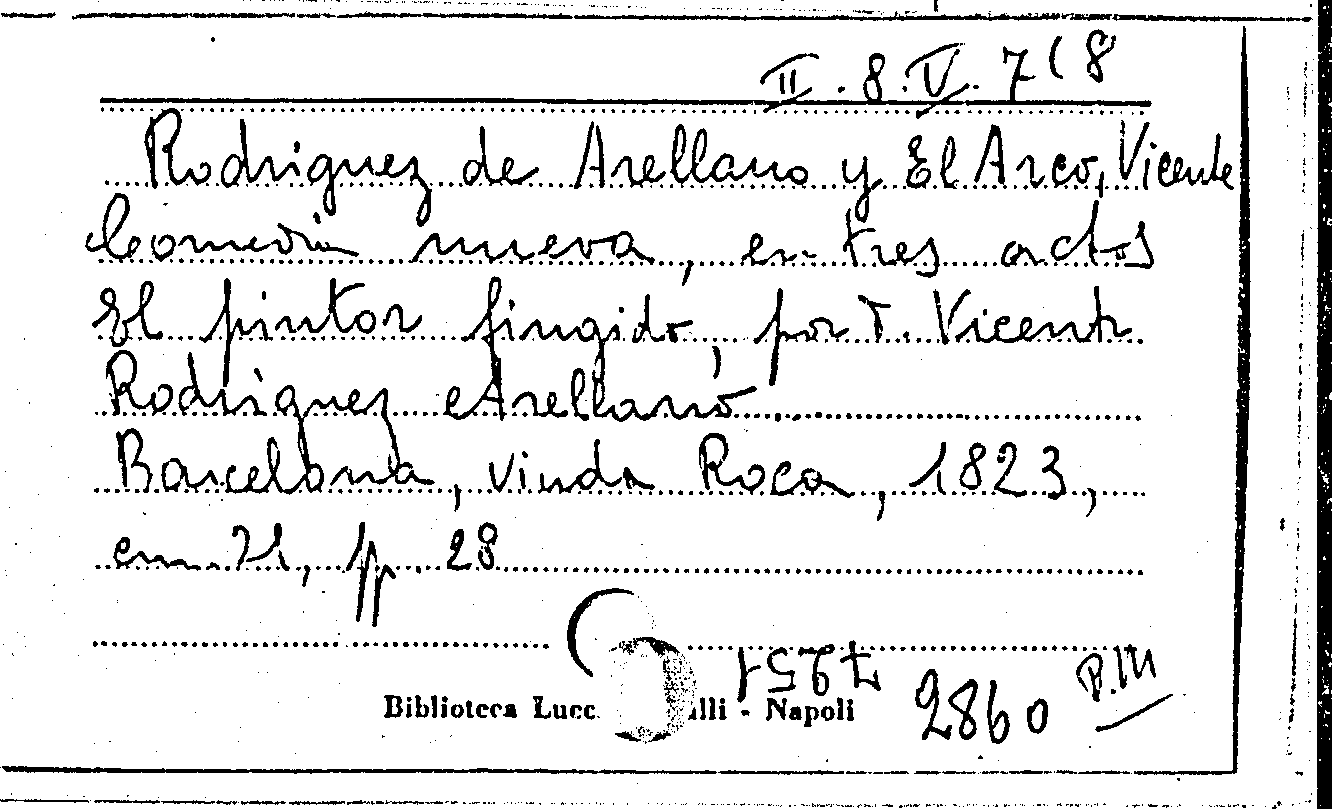 II. 8. V. 7 (8
Rodriguez de Arellano y El Arco, Vicente
Comedia nueva, en tres actos
El pintor fingido, por D. Vicente
Rodriguez Arellano
Barcelona, viuda Roca, 1823,
cm. 21, pp. 28
Biblioteca Lucc lli - Napoli
2860 P.III